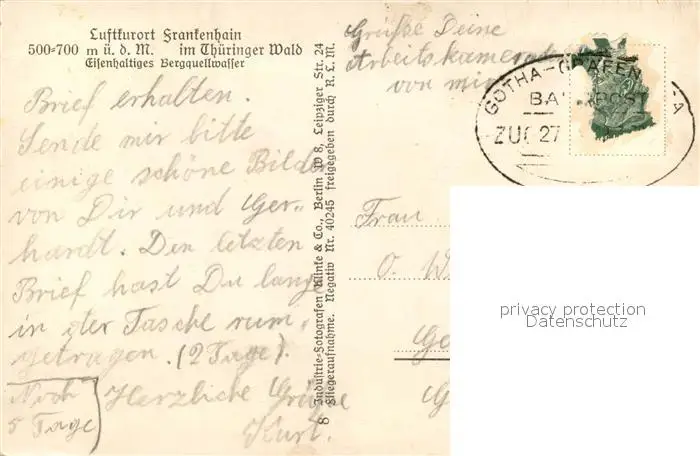 Luftkurort Frankenhain
500-700 m ü. d. M. im Thüringer Wald
Eisenhaltiges Bergquellwasser
Brief erhalten.
Sende mir bitte
einige schöne Bilder
von Dir und Ger-
hardt. Den letzten
Brief hast Du lange
in der Tasche rum-
getragen. (2 Tage).
Noch
5 Tage
Herzliche Grüße
Kurt.
8 Industrie-Fotografen Klinke & Co., Berlin W 8, Leipziger Str. 24
Fliegeraufnahme. Negativ Nr. 40245 freigegeben durch R. L. M.
Grüße Deine
Arbeitskameraden
von mir
GOTHA-GRÄFEN
BA POST
ZUG 27
Frau
O. W
Go
G
privacy protection
Datenschutz